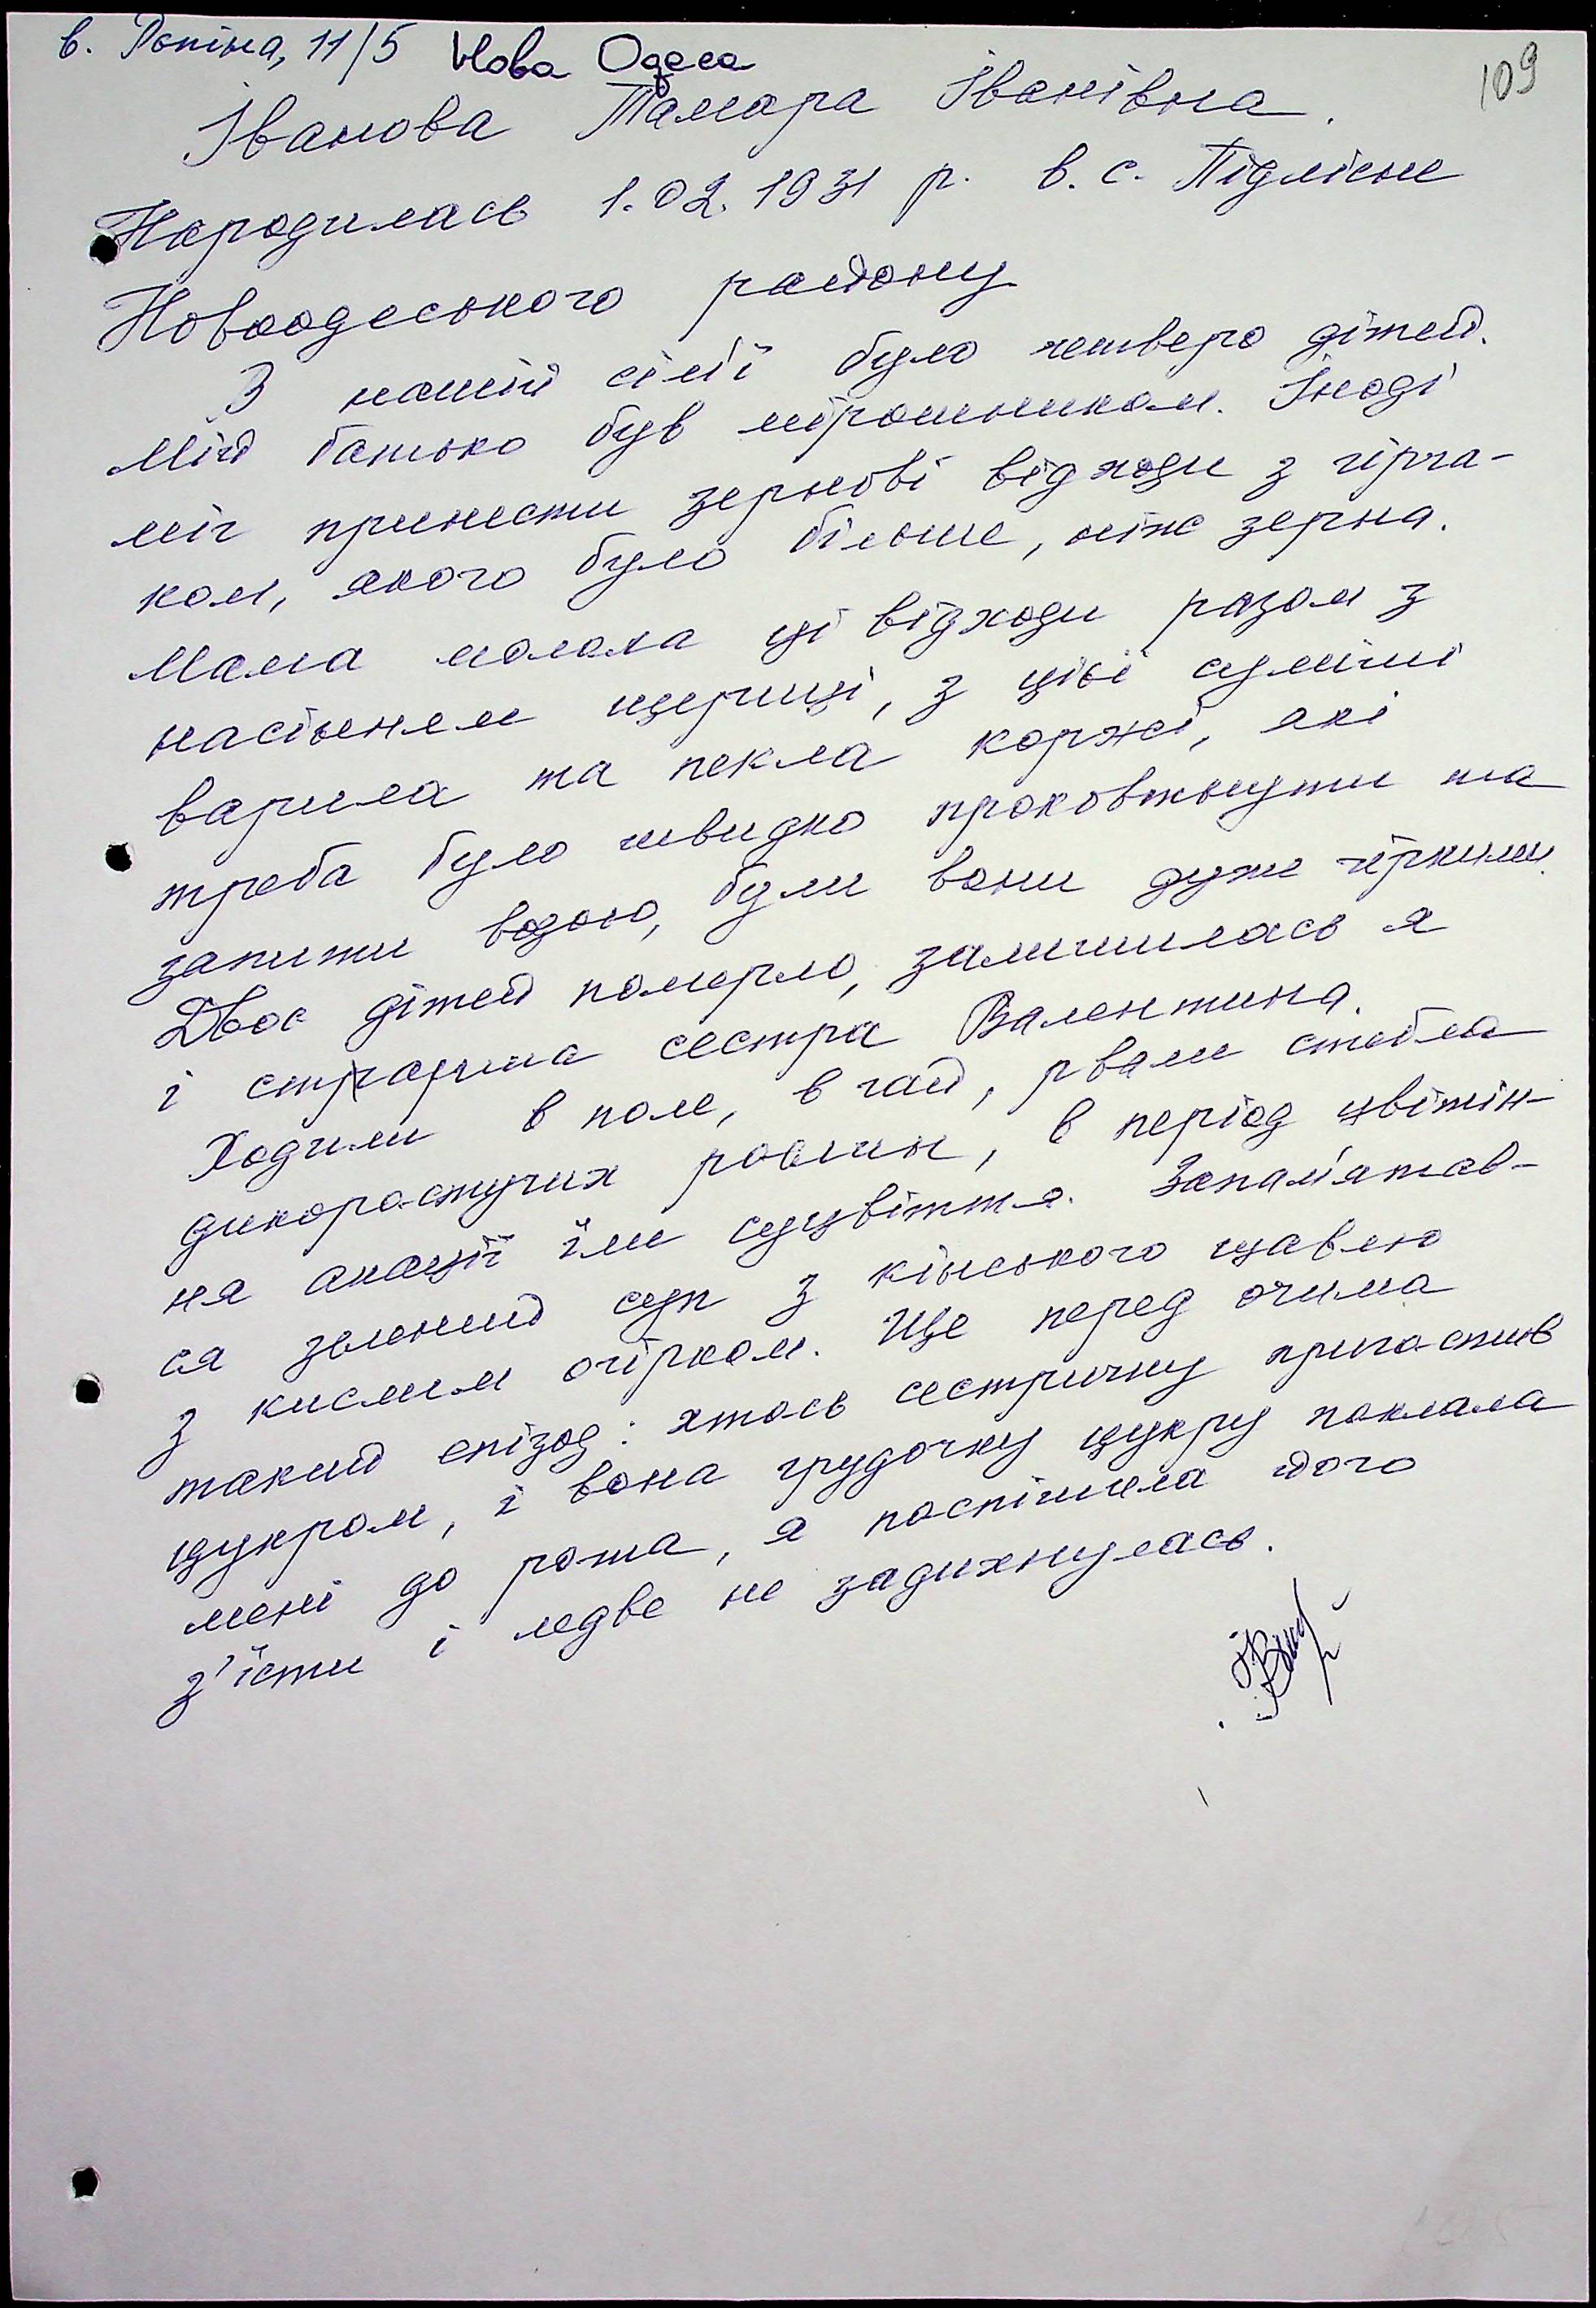 в. Рєпіна, 11/5 Нова Одеса
109
Іванова Тамара Іванівна.
Народилась 1.02.1931 р. в. с. Підлісне
Новоодеського району
В нашій сім'ї було четверо дітей.
Мій батько був мірошником. Іноді
міг принести зернові відходи з гірча-
ком, якого було більше, ніж зерна.
Мама молола ці відходи разом з
насінням щериці, з цієї суміші
варила та пекла коржі, які
треба було швидко проковтнути та
запити водою, були вони дуже гіркими.
Двоє дітей померло, залишилась я
і старша сестра Валентина.
Ходили в поле, в гай, рвали стебла
дикоростучих рослин, в період цвітін-
ня акації їли суцвіття. Запам'ятав-
ся зелений суп з кінського щавлю
з кислим огірком. Ще перед очима
такий епізод: хтось сестричку пригостив
цукром, і вона грудочку цукру поклала
мені до рота, я поспішила його
з'їсти і ледве не задихнулась.